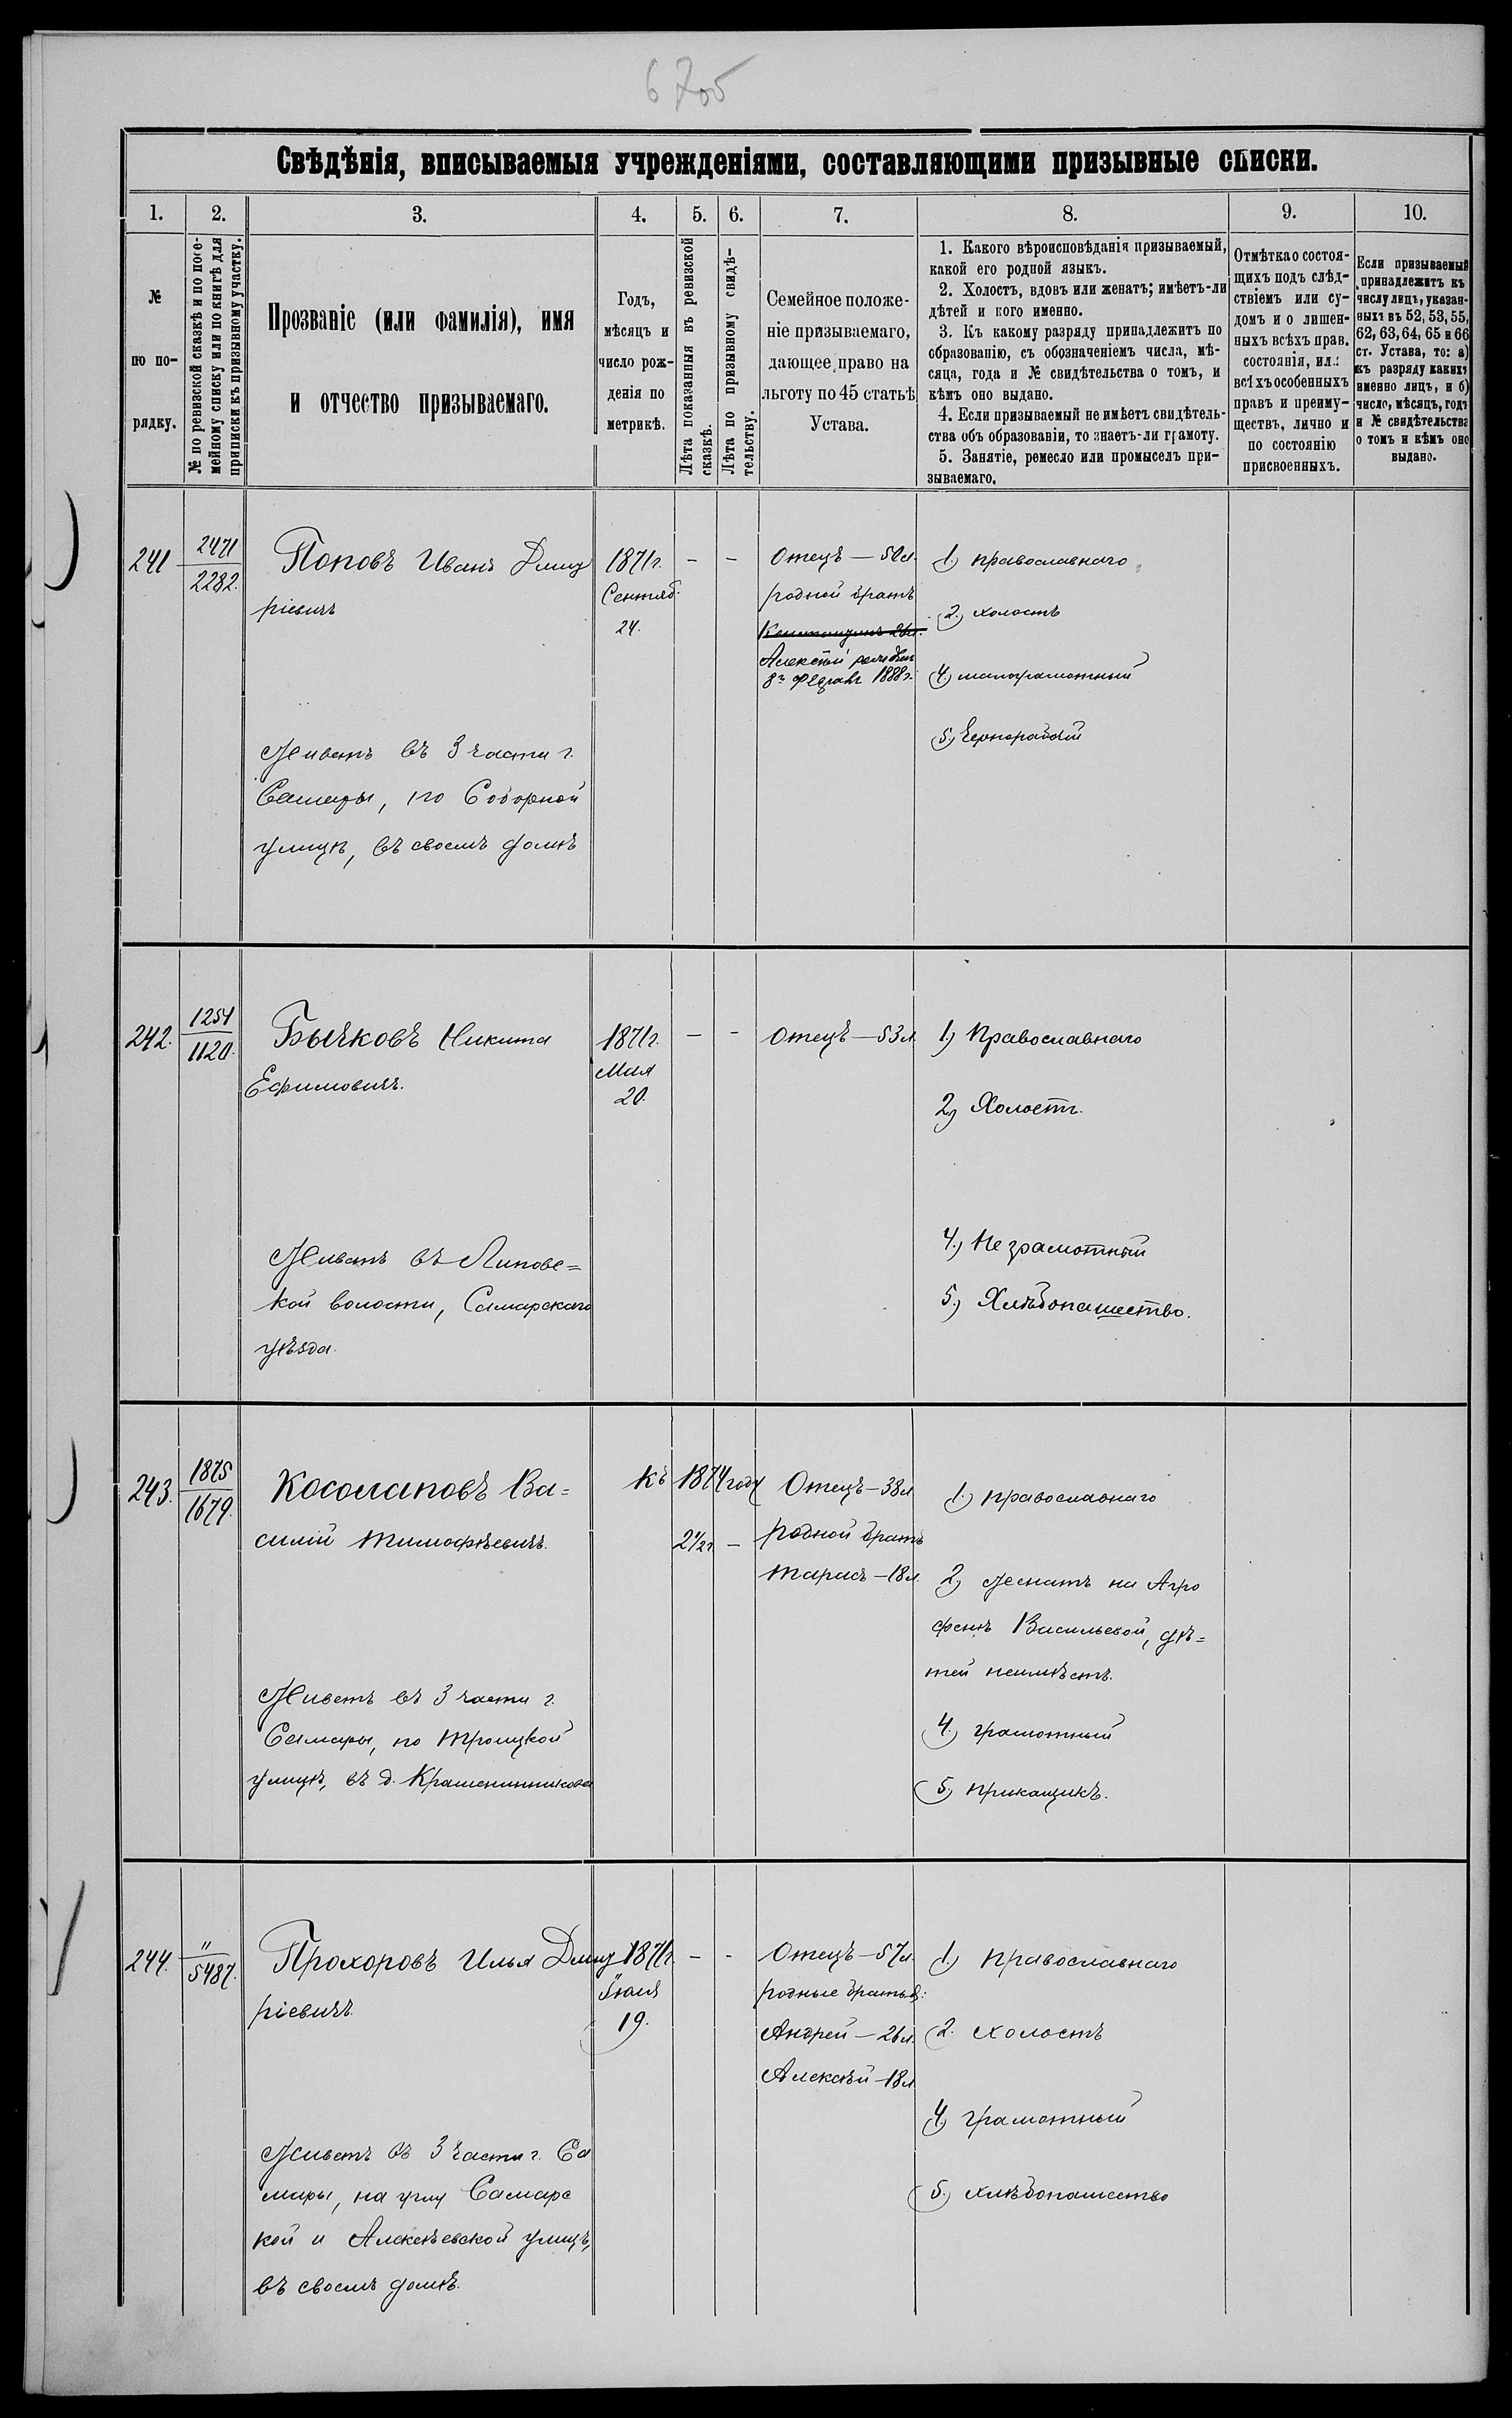 6705
Свѣдѣнія, вписываемыя учрежденіями, составляющими призывные списки.
1. 2. 3. 4. 5. 6. 7. 8. 9. 10.
№
по по-
рядку.
№ по ревизской сказкѣ и по посе-
мейному списку или по книгѣ для
приписки къ призывному участку.
Прозваніе (или фамилія), имя
и отчество призываемаго.
Годъ,
мѣсяцъ и
число рож-
денія по
метрикѣ.
Лѣта показанныя въ ревизской
сказкѣ.
Лѣта по призывному свидѣ-
тельству.
Семейное положе-
ніе призываемаго,
дающее право на
льготу по 45 статьѣ
Устава.
1. Какого вѣроисповѣданія призываемый,
какой его родной языкъ.
2. Холостъ, вдовъ или женатъ; имѣетъ-ли
дѣтей и кого именно.
3. Къ какому разряду принадлежитъ по
образованію, съ обозначеніемъ числа, мѣ-
сяца, года и № свидѣтельства о томъ, и
кѣмъ оно выдано.
4. Если призываемый не имѣетъ свидѣтель-
ства объ образованіи, то знаетъ-ли грамоту.
5. Занятіе, ремесло или промыселъ при-
зываемаго.
Отмѣтка о состоя-
щихъ подъ слѣд-
ствіемъ или су-
домъ и о лишен-
ныхъ всѣхъ прав.
состоянія, или
всѣхъ особенныхъ
правъ и преиму-
ществъ, лично и
по состоянію
присвоенныхъ.
Если призываемый
принадлежитъ къ
числу лицъ, указан-
ныхъ въ 52, 53, 55,
62, 63, 64, 65 и 66
ст. Устава, то: а)
къ разряду какихъ
именно лицъ, и б)
число, мѣсяцъ, годъ
и № свидѣтельства
о томъ и кѣмъ оно
выдано.
241
2471
2282.
Поповъ Иванъ Дмит
ріевичъ
Живетъ въ 3 части г.
Самары, по Соборной
улицѣ, въ своемъ домѣ
1871г.
Сентяб.
24.
— —
Отецъ — 50л.
родной братъ
Константинъ 26л.
Алексѣй
8го Феврал 1888г.
1) православнаго
2.) холостъ
4.) малограмотный
5.) Чернорабочій
242.
1254
1120.
Бычковъ Никита
Ефимовичъ.
Живетъ въ Липовс=
кой волости, Самарскаго
уѣзда.
1871г.
Мая
20.
— —
Отецъ — 53л.
1.) Православнаго
2.) Холостъ.
4.) Неграмотный
5.) Хлѣбопашество.
243.
1875
1679.
Косолаповъ Ва=
силій Тимофѣевичъ.
Живетъ въ 3 части г.
Самары, по Троицкой
улицѣ, въ д. Крашенинникова
Къ 1874 году
2½г. —
Отецъ — 38л.
родной братъ
Тарасъ — 18л.
1.) православнаго
2.) Женатъ на Агро
фенѣ Васильевой, дѣ=
тей неимѣетъ.
4.) грамотный
5.) приказчикъ.
244.
"
5487.
Прохоровъ Илья Дмит
ріевичъ.
Живетъ въ 3 части г. Са
мары, на углу Самарс
кой и Алексѣевской улицъ,
въ своемъ домѣ.
1871г.
Іюля
19.
— —
Отецъ — 57л.
родные братья:
Андрей — 26л.
Алексѣй — 18л.
1.) Православнаго
2. холостъ
4.) грамотный
5.) хлѣбопашество